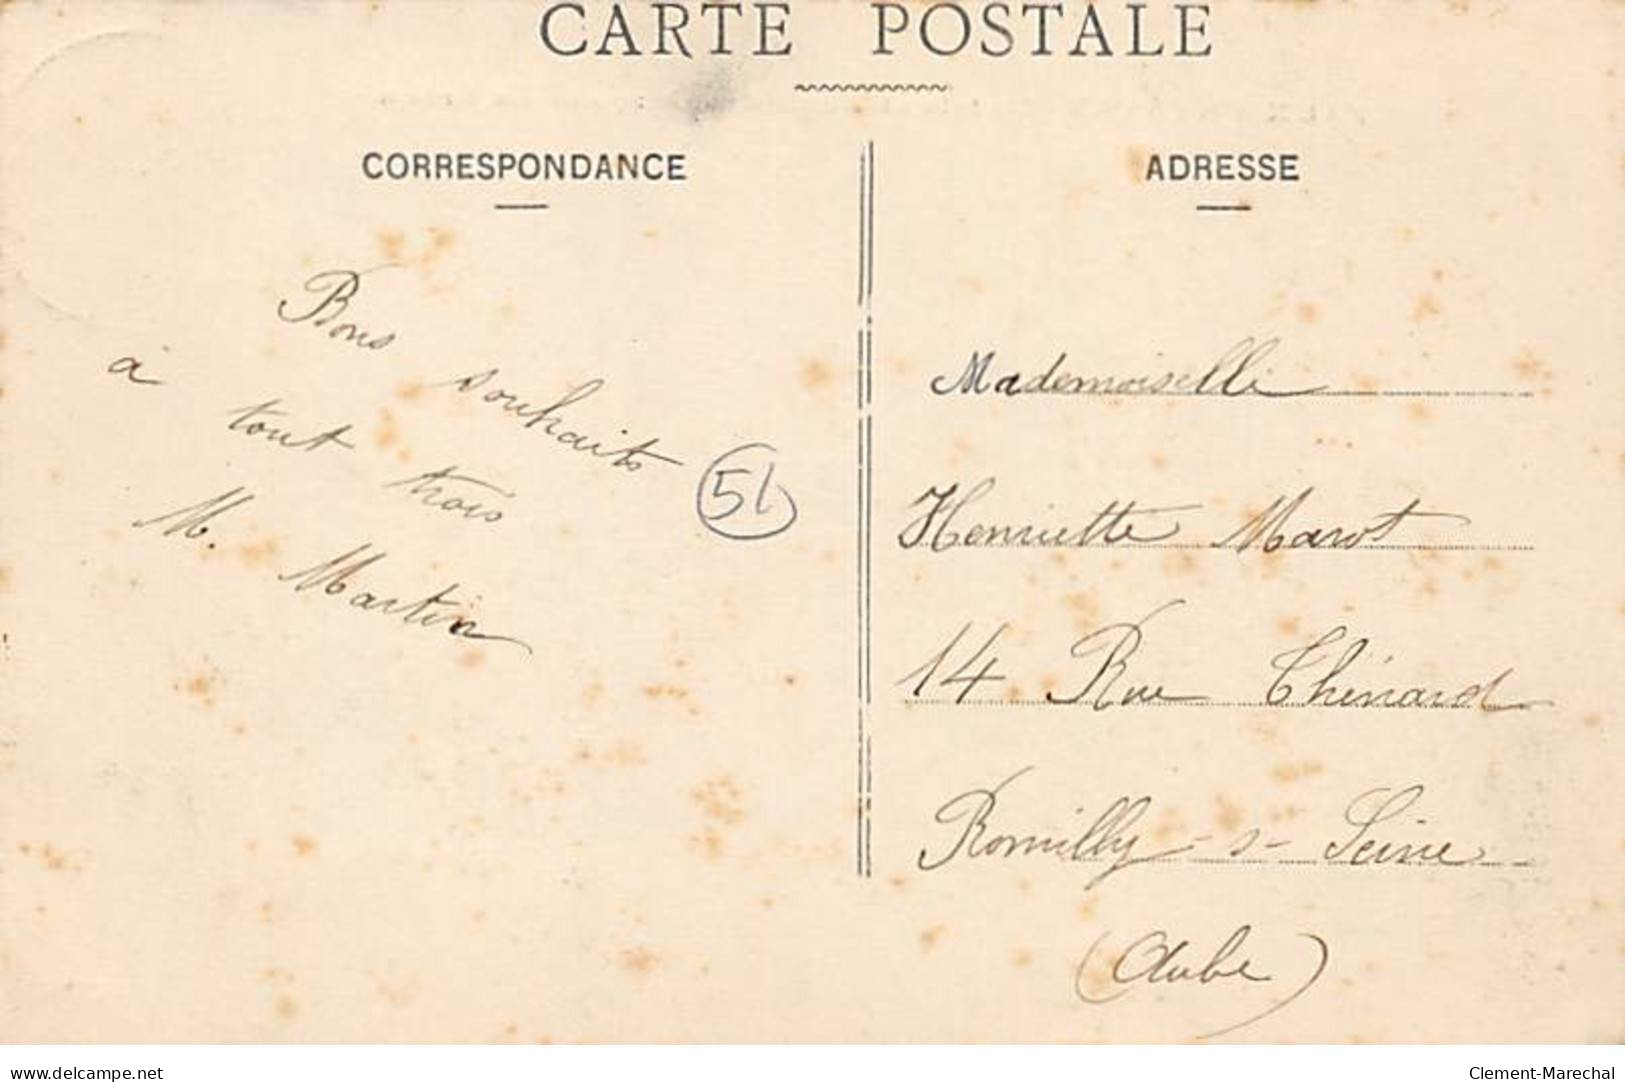 CARTE POSTALE
CORRESPONDANCE
Bons souhaits
à tout trois
M. Martin
51
ADRESSE
Mademoiselle
Henriette Marot
14 Rue Thénard
Romilly-s-Seine
(Aube)
delcampe.net
Clement-Marechal